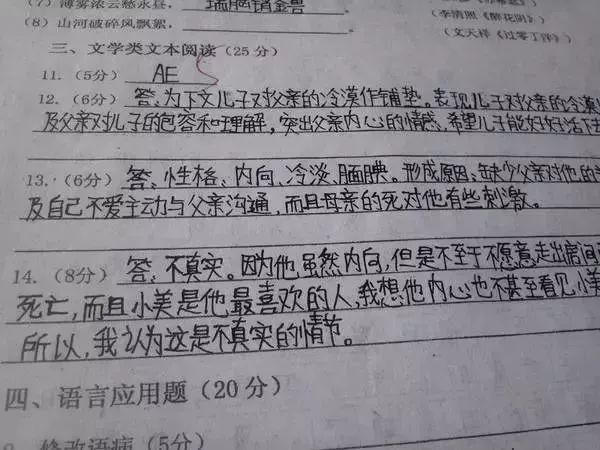 (7) 薄雾浓云愁永昼,瑞脑销金兽
(8) 山河破碎风飘絮,
(李清照《醉花阴》)
(文天祥《过零丁洋》)
三、文学类文本阅读(25分)
11. (5分) AE
12. (6分) 答:为下文儿子对父亲的冷漠作铺垫。表现儿子对父亲的冷漠以
及父亲对儿子的包容和理解,突出父亲内心的情感,希望儿子能好好活下去
13. (6分) 答:性格:内向、冷淡、腼腆。形成原因:缺少父亲对他的
及自己不爱主动与父亲沟通,而且母亲的死对他有些刺激。
14. (8分) 答:不真实。因为他虽然内向,但是不至于不愿意走出房间
死亡,而且小美是他最喜欢的人,我想他内心也不甚至看见小美
所以,我认为这是不真实的情节。
四、语言应用题(20分)
修改语病(5分)